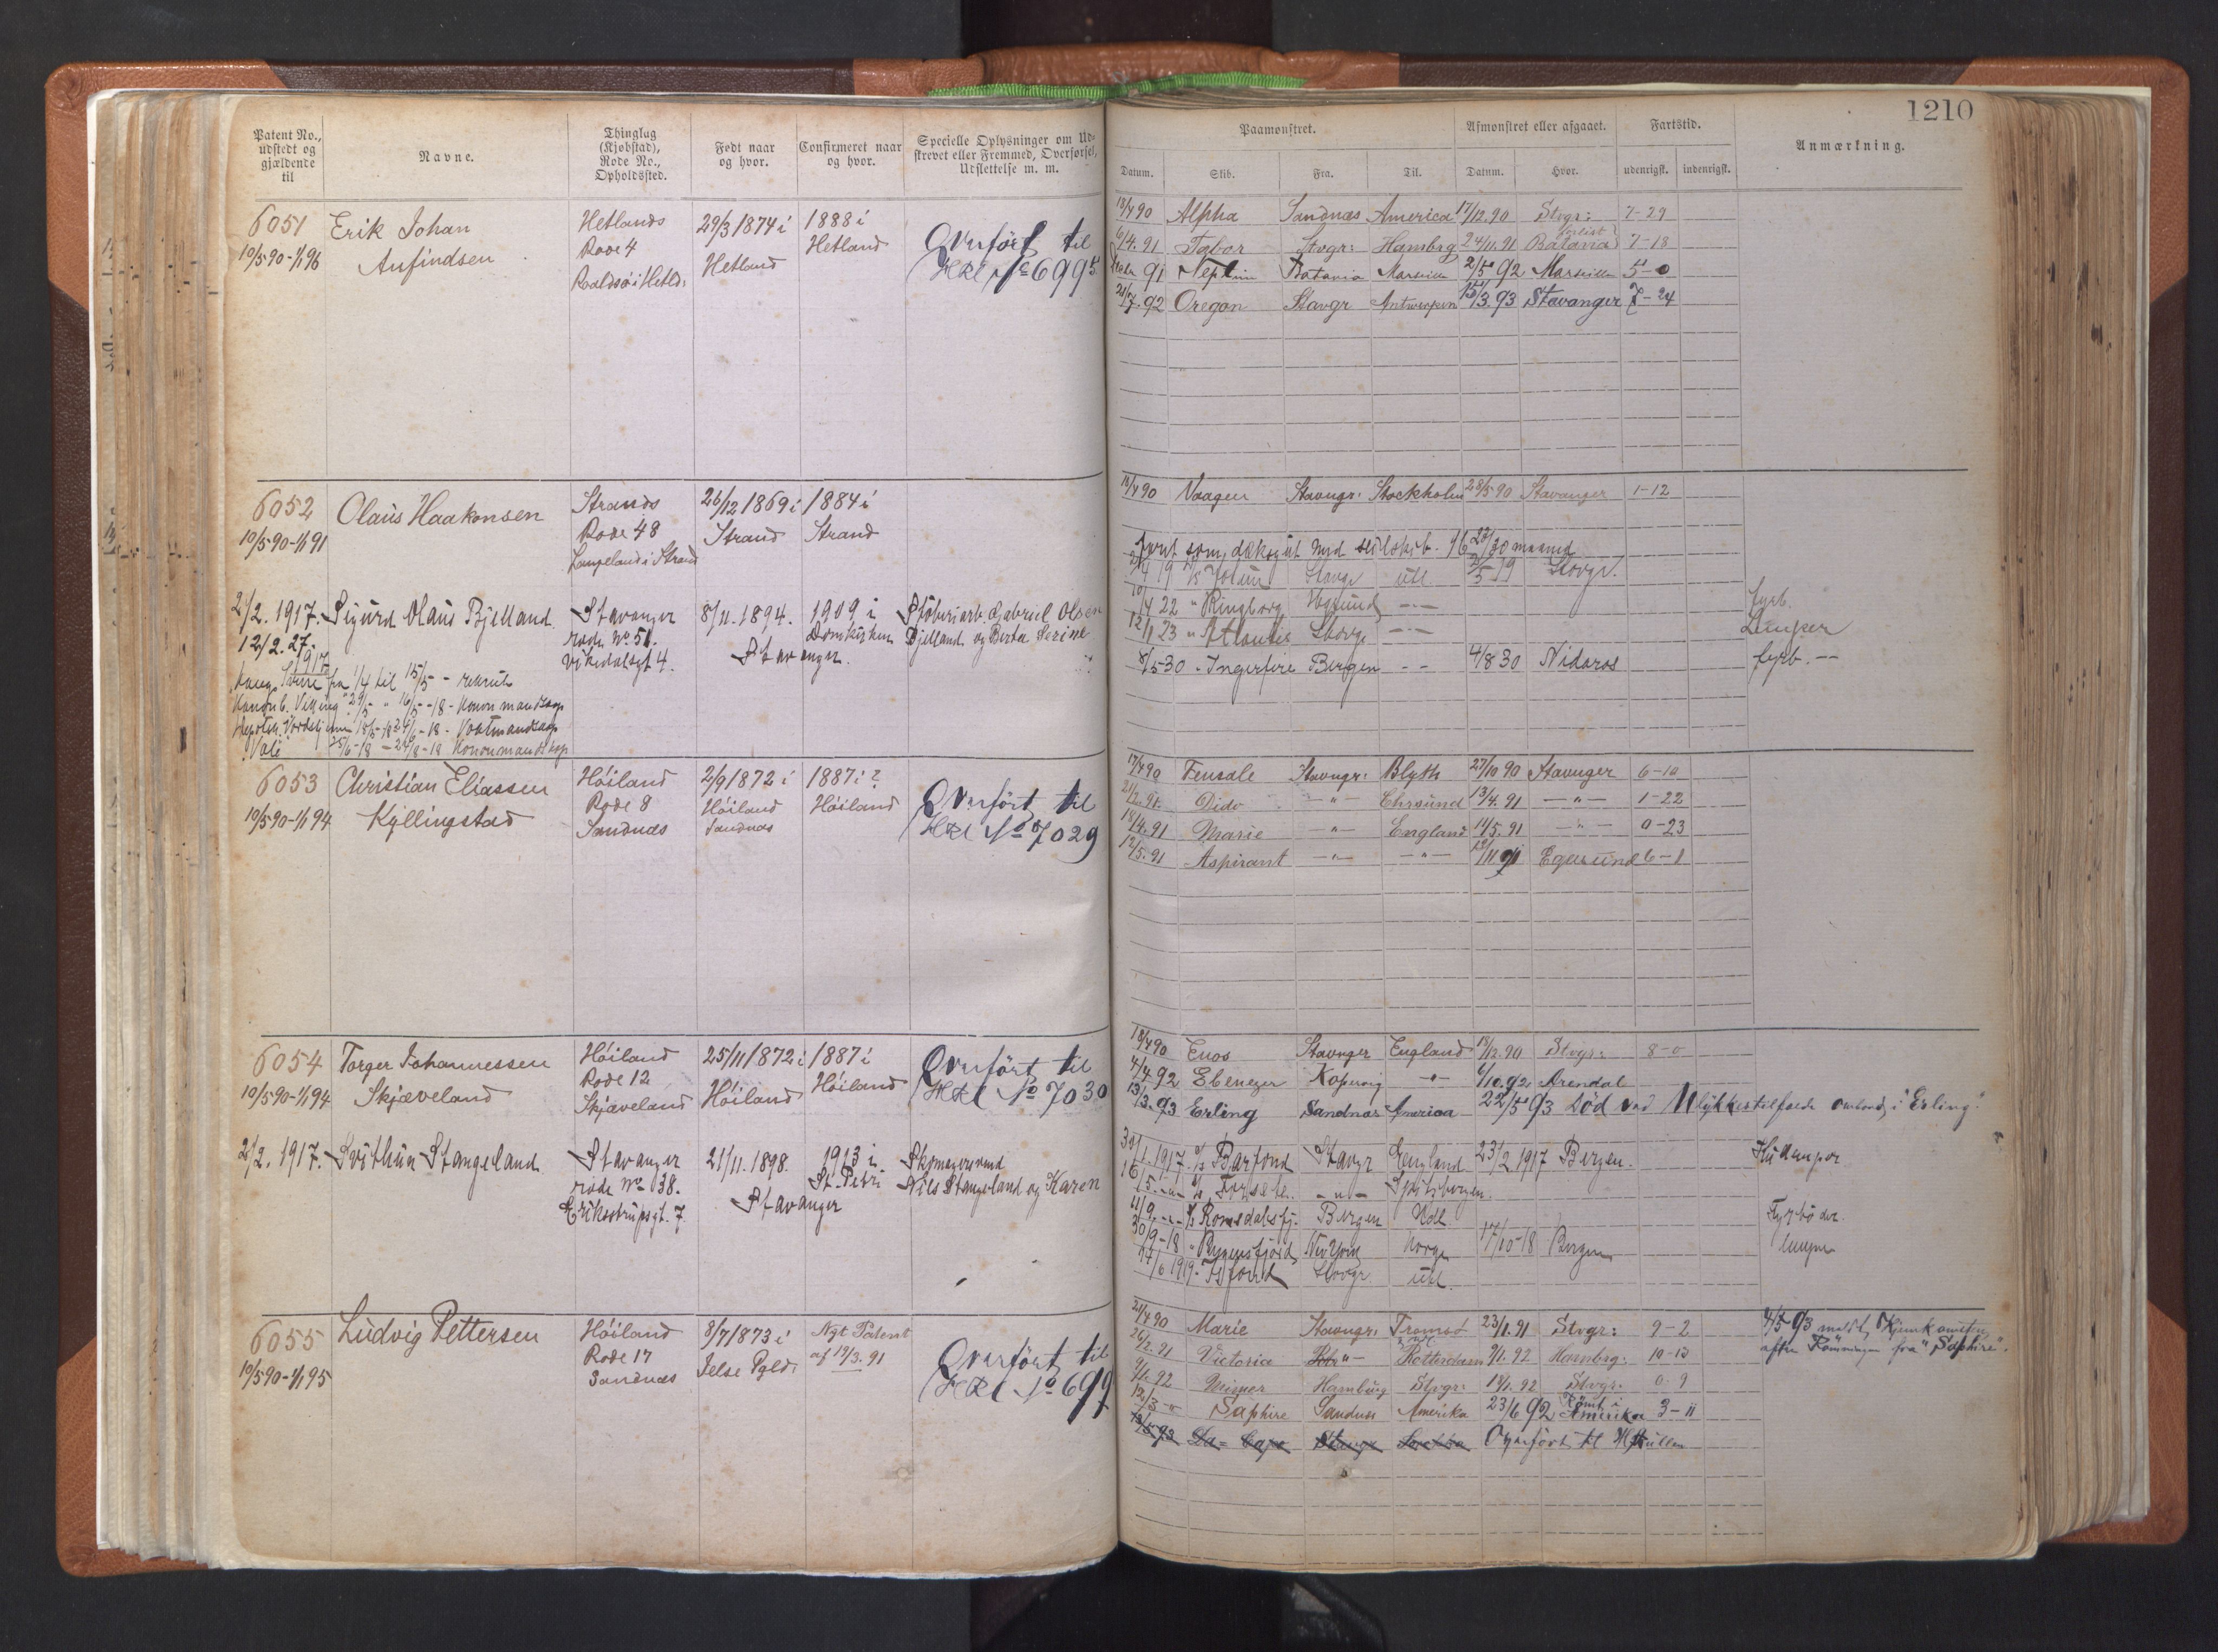 1210
Patent No., udstedt og gjældende til
Navne.
Thinglug (Kjøbstad), Rode No., Opholdssted.
Født naar og hvor.
Confirmeret naar og hvor.
Specielle Oplysninger om Udskrevet eller Fremmed, Overførsel, Udslettelse m. m.
Paamønstret.
Afmønstret eller afgaaet.
Fartstid.
Anmærkning.
Datum. Skib. Fra. Til. Datum. Hvor. udenrigsk. indenrigsk.
6051 Erik Johan Hetlands 29/3 1874 i 1888 i Overført til
10/5 90-1/1 96 Anfindsen Rode 4 Hetland Hetland No 6995
Roaldsø i Hetld:
18/4 90 Alpha Sandnæs America 17/12.90 Stvgr: 7-29
6/4.91 Tabor Stvgr: Hambrg 24/11.91 Batavia 7-18
91 Neptun Batavia Marseille 2/5 92 Marseille 5-0
21/7.92 Oregon Stavgr Antwerpen 15/3.93 Stavanger 7-24
6052 Olaus Haakonsen Strands 26/12 1869 i 1884 i
10/5 90-1/1 91 Rode 48 Strand Strand
Langeland i Strand
18/4 90 Vaagen Stavngr: Stockholm 28/5 90 Stavanger 1-12
2/2. 1917. Sigurd Olaus Bjelland. Stavanger 8/11. 1894. 1909 i Støberiarb. Gabriel Olsen
12/2.27. rode No 51. Stavanger. Domkirken Bjelland og Berta Serine
Vikedalsgt 4.
1917
fra 1/4 til 15/5 - rekrut
Kanonb. Viking
faret som dæksgut med seilskib. 16 22/30 maaned
4 19 Stavgr utl. 5 19 Stavgr.
4 22 " Ringborg
12/1 23 " Atlantic Stavgr Lemper
8/5 30 - Ingerfire Bergen - - 4/8 30 Nidaros fyrb. -
6053 Christian Eliassen Høiland 2/9 1872 i 1887 i ? Overført til
10/5 90-1/1 94 Kyllingstad Rode 8 Høiland Høiland No 7029
Sandnæs Sandnæs
17/4 90 Fensale Stavngr: Blyth 27/10 90 Stavanger 6-10
21/2.91. Dido -"- Ehrsund 13/4.91 -"- 1-22
18/4.91 Marie -"- England 11/5.91 -"- 0-23
12/5.91 Aspirant -"- -"- 12/11 91 Egersund 6-1
6054 Torger Johannessen Høiland 25/11 1872 i 1887 i Overført til
10/5 90-1/1 94 Skjæveland Rode 12 Høiland Høiland No 7030
Skjæveland
18/4 90 Enos Stavnger England 18/12.90 Stvgr: 8-0
4/4 92 Ebenezer Kopervig -"- 6/10.92 Arendal
13/3.93 Erling Sandnæs America 22/5 93 Død ved Ulykkestilfælde ombord i "Erling".
2/2. 1917. Svithun Stangeland. Stavanger 21/11. 1898. 1913 i Skomagersvend
rode No 38. Stavanger St. Petri Nils Stangeland og Karen
Eriksstrupsgt. 7
1917 Barfond Stavgr England 23/2 1917 Bergen.
Spitsbergen.
11/9 Romsdalsfj. Bergen Udl. Fyrbøder.
30/9-18 " Bergensfjord New York Norge 17/10-18 Bergen Lemper
17/6 1919. Isfond Stavgr. utl.
6055 Ludvig Pettersen Høiland 8/7 1873 i Nyt Patent Overført til
10/5 90-1/1 95 Rode 17 Jelse Pgld: af 19/3.91
Sandnæs
21/4 90 Marie Stavngr: Tromsø 23/1.91 Stvgr: 9-2
26/2.91 Victoria Rotterdam 9/1.92 Hambrg: 10-13
9/1.92 Mimer Hamburg Stvgr: 18/1.92 Stvgr: 0-9
12/3 " Saphire Sandnes Amerika 23/6 92 Rømt i Amerika 3-11
Overført til H rullen
4/5 93 meldt Hjemkomsten
efter Rømningen fra "Saphire".